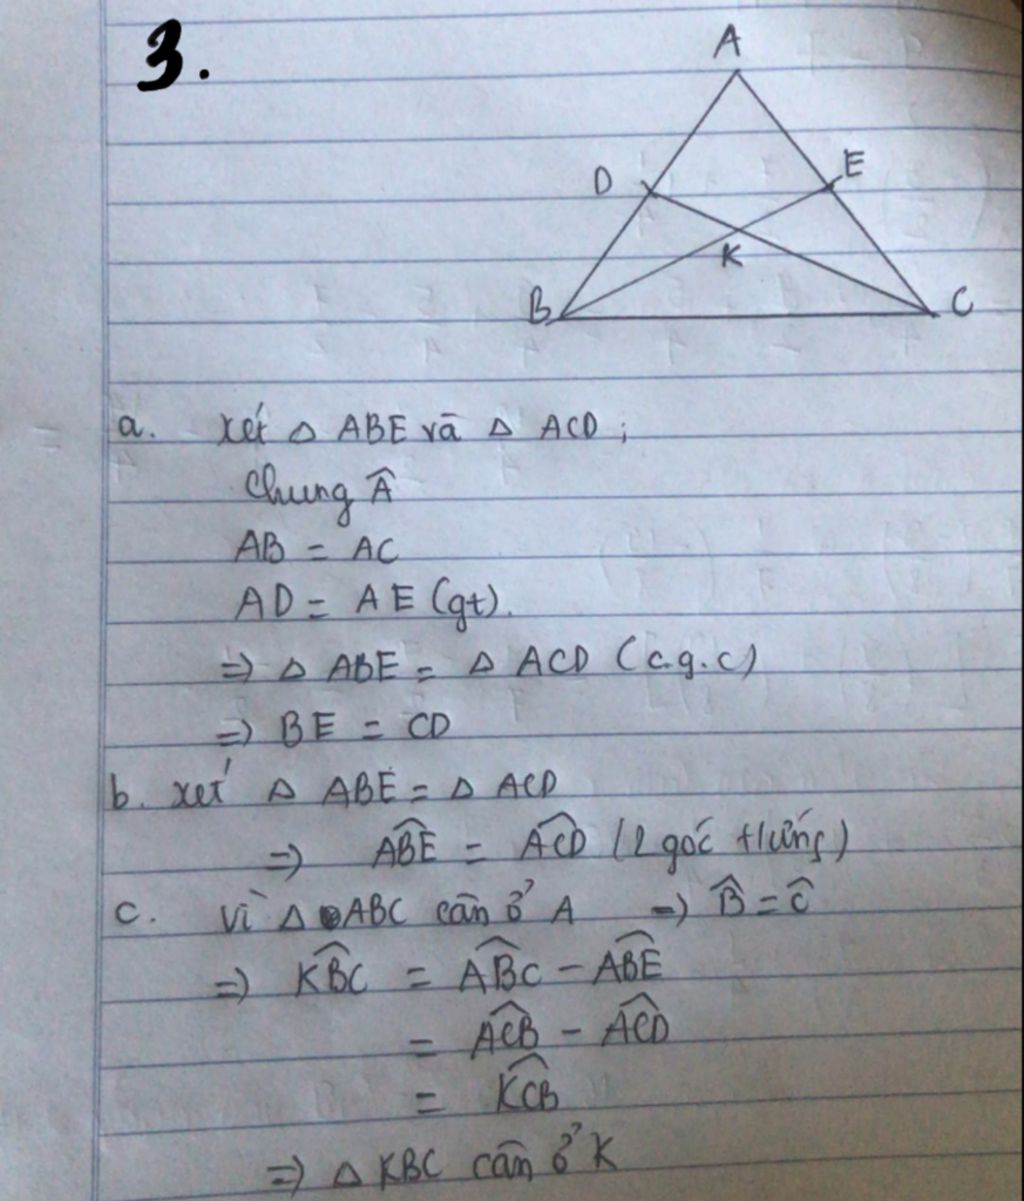 3.
A
D
E
K
B
C
a. xét △ ABE và △ ACD ;
Chung Â
AB = AC
AD = AE (gt).
=> △ ABE = △ ACD (c.g.c)
=> BE = CD
b. xét △ ABE = △ ACD
=> \widehat{ABE} = \widehat{ACD} (2 góc tứng)
c. Vì △ ABC cân ở A => \widehat{B} = \widehat{C}
=> \widehat{KBC} = \widehat{ABC} - \widehat{ABE}
= \widehat{ACB} - \widehat{ACD}
= \widehat{KCB}
=> △ KBC cân ở K